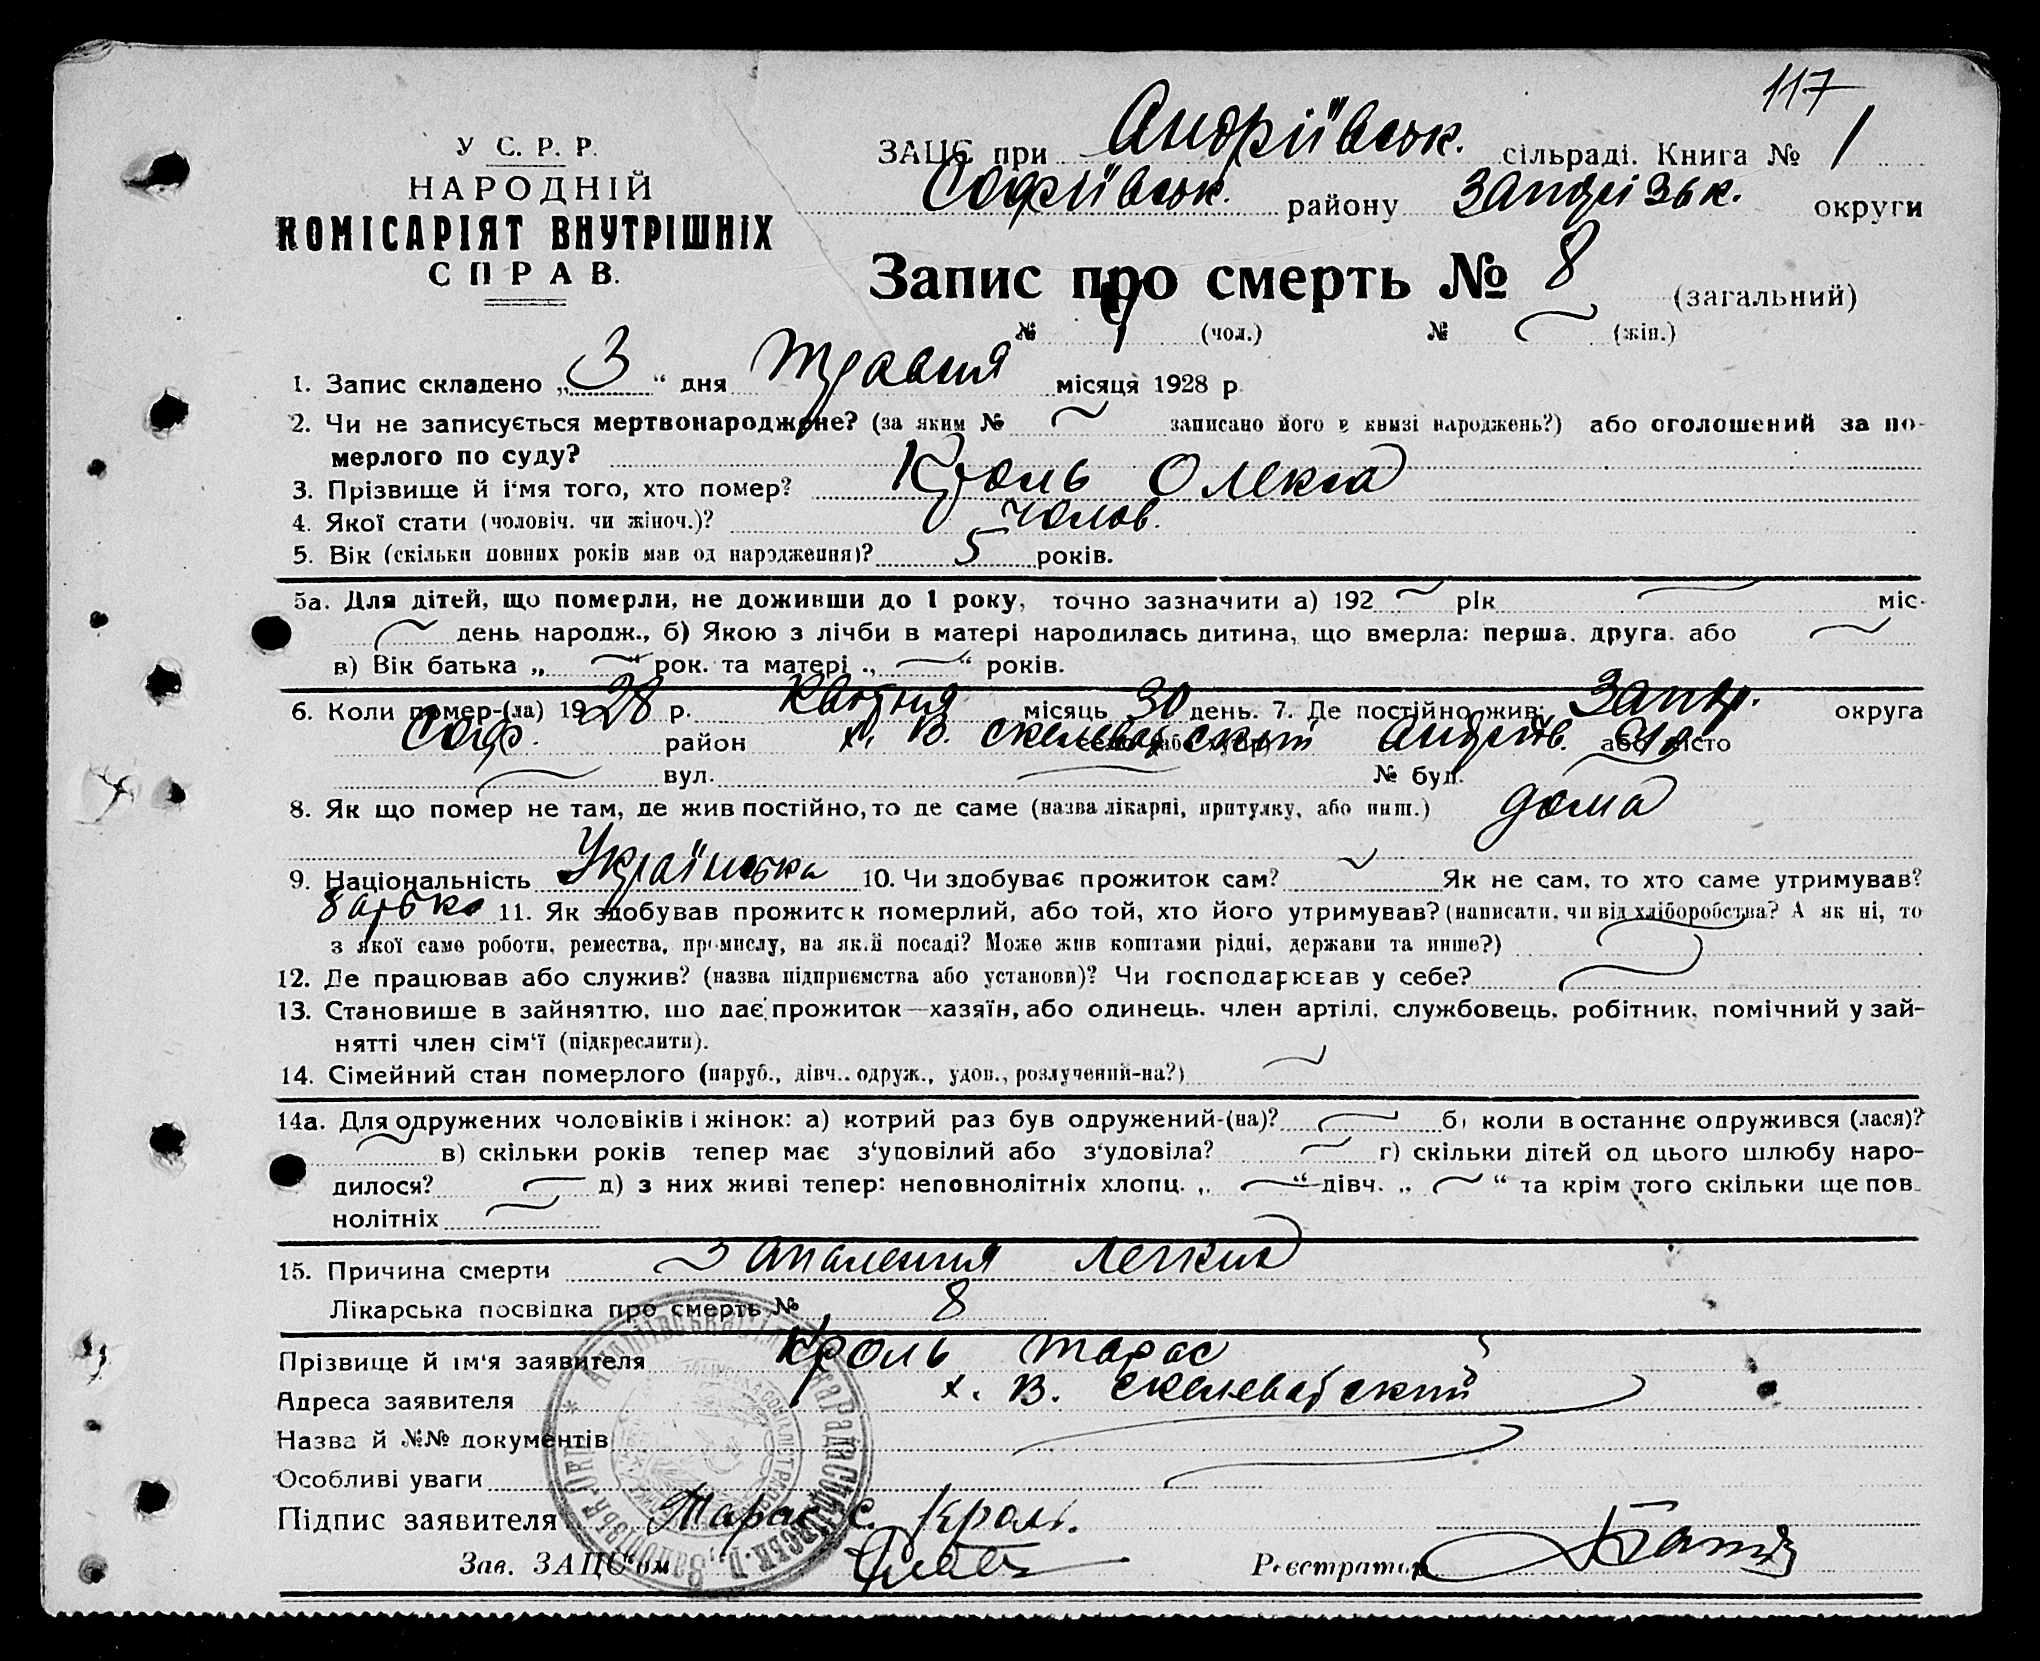 117
У С. Р. Р.
НАРОДНІЙ
КОМІСАРІЯТ ВНУТРІШНІХ
СПРАВ.
ЗАЦС при Андріївськ. сільраді. Книга № 1
Софіївськ. району Запорізьк. округи
Запис про смерть № 8 (загальний)
№ (чол.) № (жін.)
1. Запис складено „3“ дня Травня місяця 1928 р.
2. Чи не записується мертвонароджене? (за яким № записано його в книзі народжень?) або оголошений за по-
мерлого по суду?
3. Прізвище й і'мя того, хто помер? Кроль Олекса
4. Якої стати (чоловіч. чи жіноч.)? Чолов.
5. Вік (скільки повних років мав од народження)? 5 років.
5а. Для дітей, що померли, не доживши до 1 року, точно зазначити а) 192 рік міс.
день народж., б) Якою з лічби в матері народилась дитина, що вмерла: перша, друга, або
в) Вік батька „ “ рок. та матері „ “ років.
6. Коли помер-(ла) 1928 р. Квітня місяць 30 день. 7. Де постійно жив: Запор. округа
Соф. район х. В. Скелеватський Андріїв. або місто
вул. № буд.
8. Як що помер не там, де жив постійно, то де саме (назва лікарні, притулку, або инш.) дома
9. Національність Українська 10. Чи здобуває прожиток сам? Як не сам, то хто саме утримував?
батько 11. Як здобував прожиток померлий, або той, хто його утримував? (написати, чи від хліборобства? А як ні, то
з якої саме роботи, ремества, промислу, на якій посаді? Може жив коштами рідні, держави та инше?)
12. Де працював або служив? (назва підприємства або установи)? Чи господарював у себе?
13. Становище в зайняттю, що дає прожиток—хазяїн, або одинець, член артілі, службовець, робітник, помічний у зай-
нятті член сім'ї (підкреслити).
14. Сімейний стан померлого (паруб., дівч., одруж., удов., розлучений-на?)
14а. Для одружених чоловіків і жінок: а) котрий раз був одружений-(на)? б) коли в останнє одружився (лася)?
в) скільки років тепер має з'удовілий або з'удовіла? г) скільки дітей од цього шлюбу наро-
дилося? д) з них живі тепер: неповнолітніх хлопц. „ “ дівч. „ “ та крім того скільки ще пов-
нолітніх
15. Причина смерти Запалення легких
Лікарська посвідка про смерть № 8
Прізвище й ім'я заявителя Кроль Тарас
Адреса заявителя х. В. Скелеватський
Назва й №№ документів
Особливі уваги
Підпис заявителя Тарас С. Кроль.
Зав. ЗАЦС'ом Реєстратор